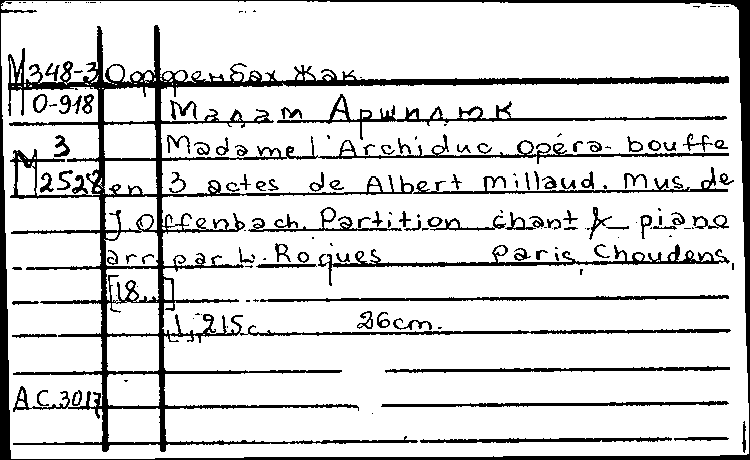 М348-3 Оффенбах Жак
О-918 Мадам Аршидюк
М 3 Madame l'Archiduc. Opéra-bouffe
2528 en 3 actes de Albert Millaud. Mus. de
J Offenbach. Partition chant & piano
arr. par L. Roques Paris, Choudens,
[18..]
[1], 215c. 26cm.
А С.3017